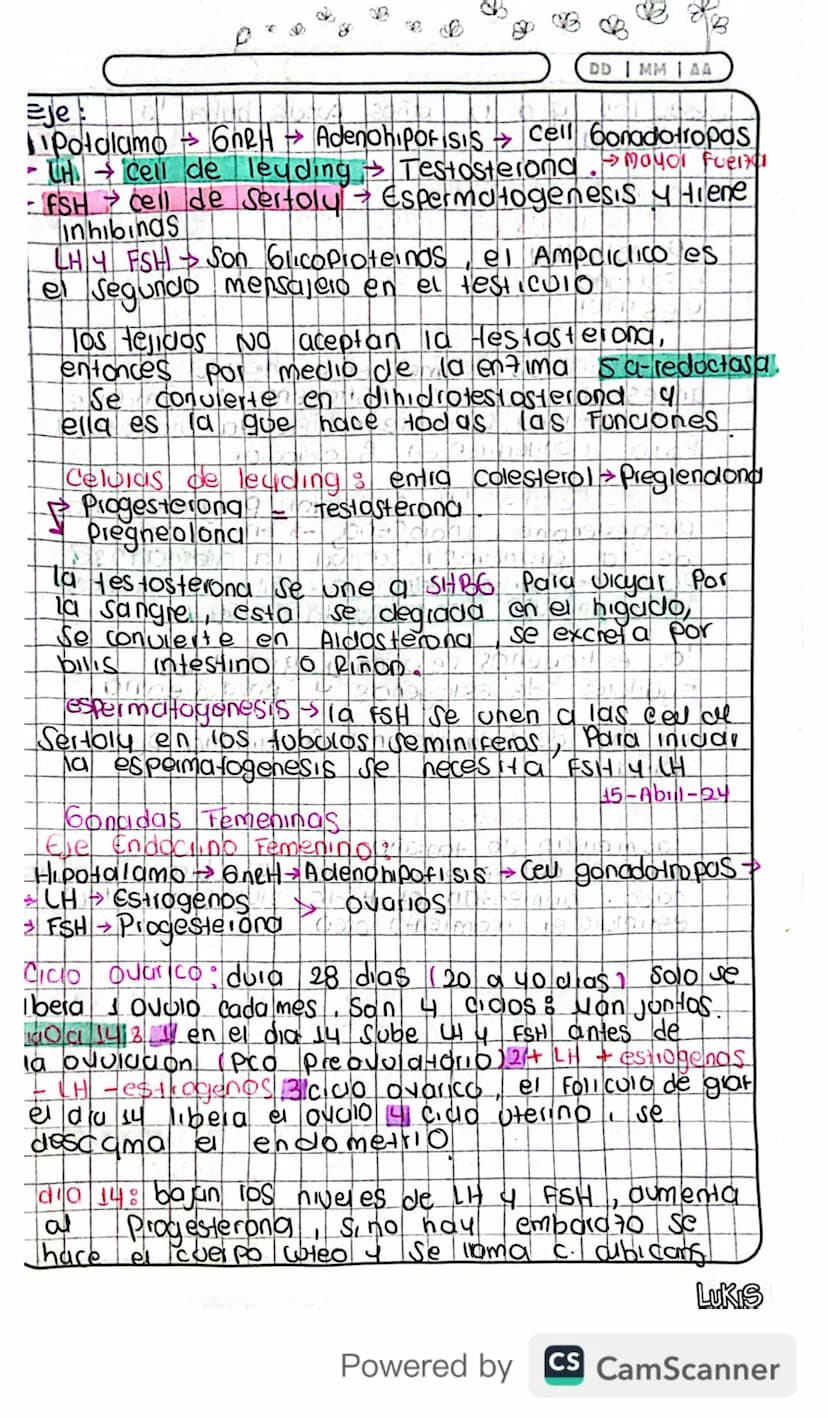 DD | MM | AA
Eje:
Hipotalamo → GnRH → Adenohipofisis → cell Gonadotropas
- LH → cell de leyding → Testosterona. → mayor fuerza
- FSH → cell de Sertoly → Espermatogenesis y tiene
inhibinas
LH y FSH → Son Glicoproteinas, el Ampciclico es
el segundo mensajero en el testiculo
los tejidos NO aceptan la testosterona,
entonces por medio de la enzima 5 α-reductasa.
Se convierte en dihidrotestosterona y
ella es la que hace todas las Funciones.
Celulas de leyding: entra colesterol → Preglendona
Progesterona = Testosterona.
Pregneolona
la testosterona se une a SHBG Para viajar Por
la sangre, esta se degrada en el higado,
Se convierte en Aldosterona, se excreta por
bilis intestino o Riñon.
espermatogenesis → la FSH se unen a las cell de
Sertoly en los tobulos seminiferos, Para iniciar
la espermatogenesis se necesita FSH y LH
15-Abril-24
Gonadas Femeninas
Eje Endocrino Femenino:
Hipotalamo → GnRH → Adenohipofisis → Cell gonadotropas →
→ LH → Estrogenos ↘ ovarios
→ FSH → Progesterona
Ciclo ovarico: dura 28 dias (20 a 40 dias) solo se
libera 1 ovulo cada mes. Son 4 ciclos: van juntos.
14: 1 en el dia 14 sube LH y FSH antes de
la ovulacion (Pco Preovulatorio) 2 + LH + estrogenos
- LH - estrogenos 3 ciclo ovarico, el foliculo de graf
el dia 14 libera el ovulo 4 ciclo uterino, se
descama el endometrio
dia 14: bajan los niveles de LH y FSH, aumenta
al Progesterona, si no hay embarazo se
hace el cuerpo luteo y se llama c. albicans
LUKIS
Powered by CS CamScanner